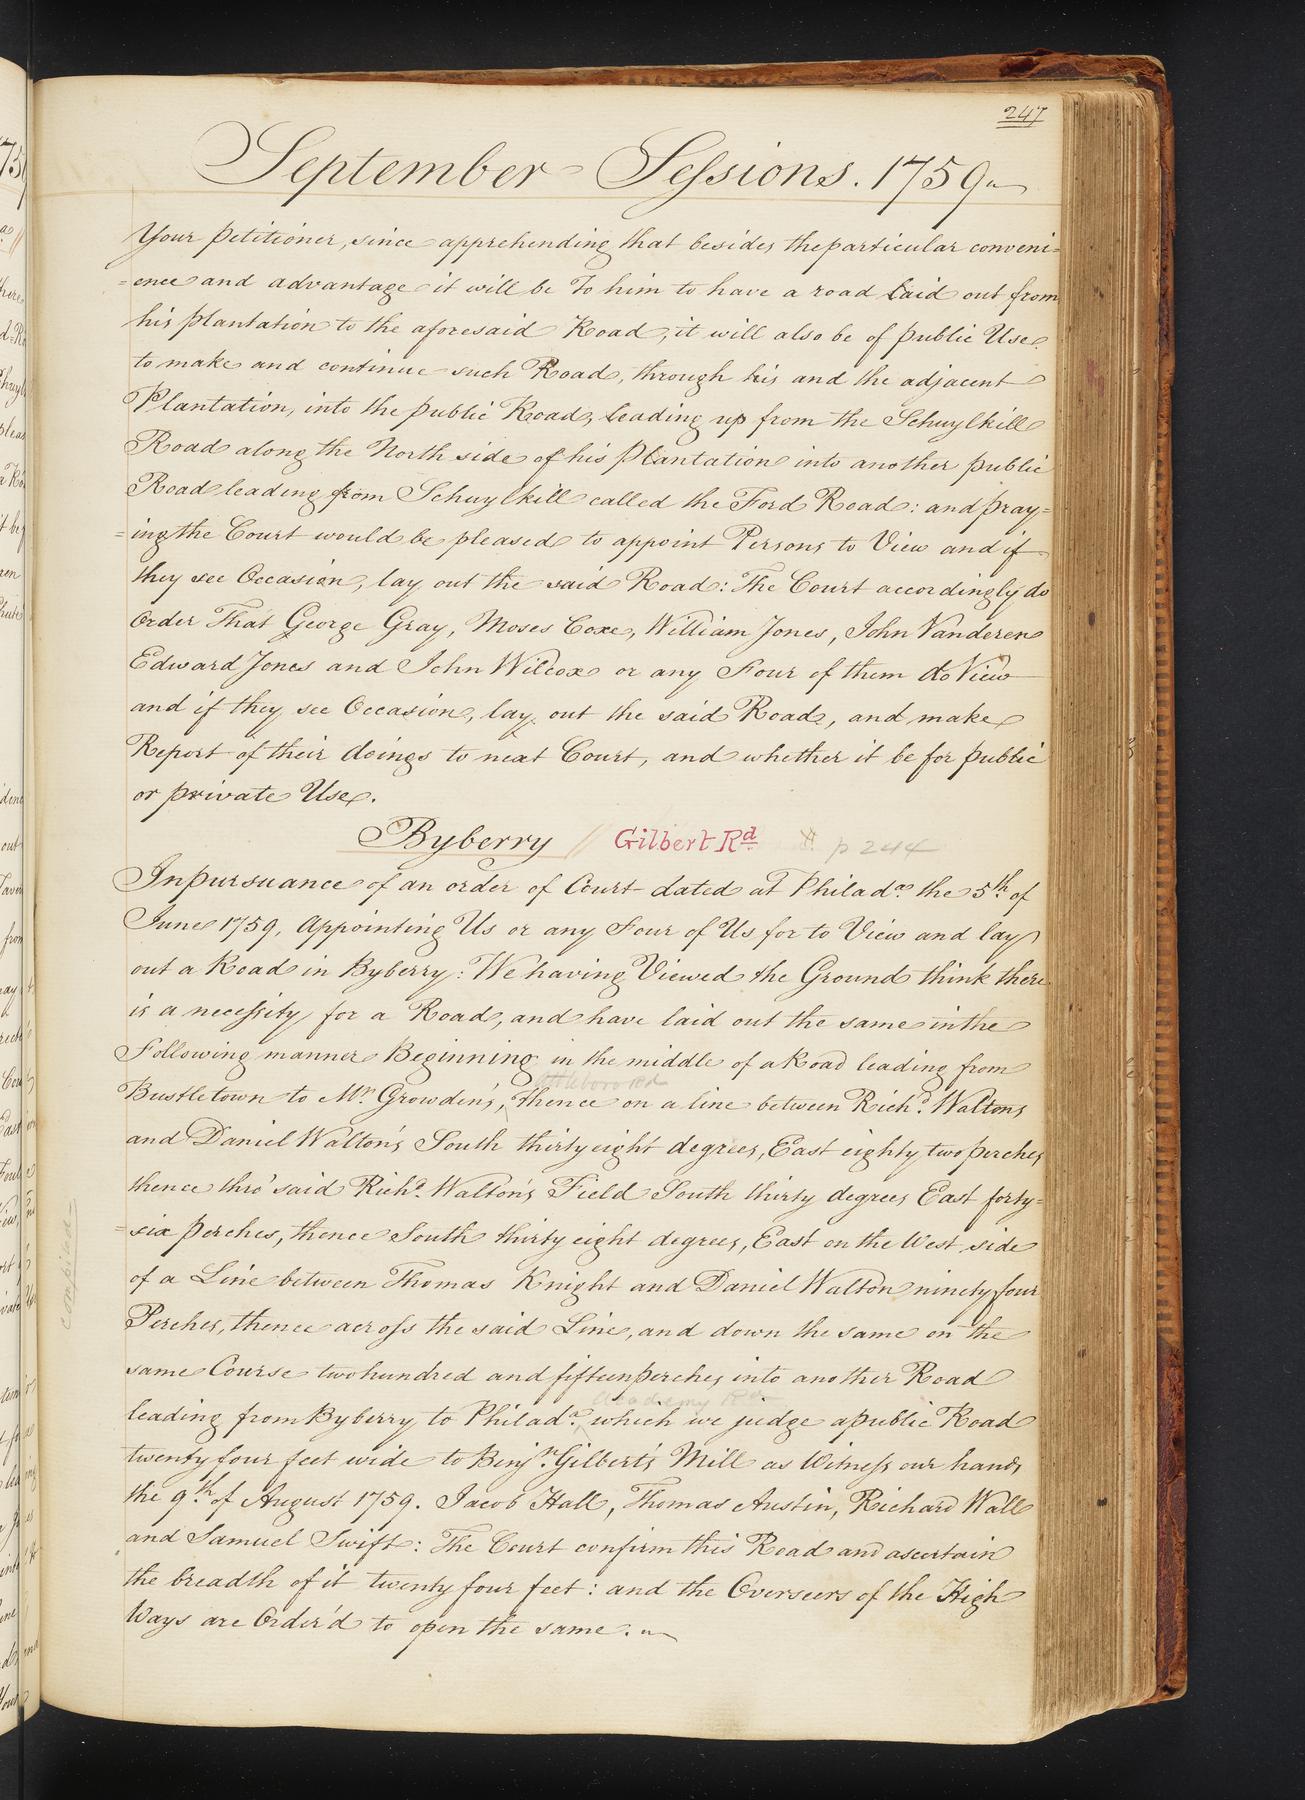 247
September Sessions. 1759
Your Petitioner, since apprehending that besides the particular conveni=
=ence and advantage it will be to him to have a road laid out from
his Plantation to the aforesaid Road, it will also be of public Use
to make and continue such Road, through his and the adjacent
Plantation, into the public Road, leading up from the Schuylkill
Road along the North side of his Plantation into another public
Road leading from Schuylkill called the Ford Road: and pray=
=ing the Court would be pleased to appoint Persons to View and if
they see Occasion, lay out the said Road: The Court accordingly do
Order That George Gray, Moses Coxe, William Jones, John Vanderen
Edward Jones and John Wilcox or any Four of them do View
and if they see Occasion, lay out the said Road, and make
Report of their doings to next Court, and whether it be for public
or private Use.
Byberry // Gilbert Rd p 244
In pursuance of an order of Court dated at Philada. the 5th of
June 1759, Appointing Us or any Four of Us for to View and lay
out a Road in Byberry: We having Viewed the Ground think there
is a necessity for a Road, and have laid out the same in the
Following manner Beginning in the middle of a Road leading from
Attleboro Rd
Bustletown to Mr. Growden's, thence on a line between Richd. Waltons
and Daniel Walton's South thirty eight degrees, East eighty two perches
thence thro' said Richd. Walton's Field South thirty degrees East forty=
=six perches, thence South thirty eight degrees, East on the West side
of a Line between Thomas Knight and Daniel Walton ninety four
Perches, thence across the said Line, and down the same on the
same Course two hundred and fifteen perches into another Road
Academy Rd
leading from Byberry to Philada. which we judge a public Road
twenty four feet wide to Benjn. Gilbert's Mill as Witness our hands
the 9th of August 1759. Jacob Hall, Thomas Austin, Richard Wall
and Samuel Swift: The Court confirm this Road and ascertain
the breadth of it twenty four feet: and the Overseers of the High
Ways are Order'd to open the same.